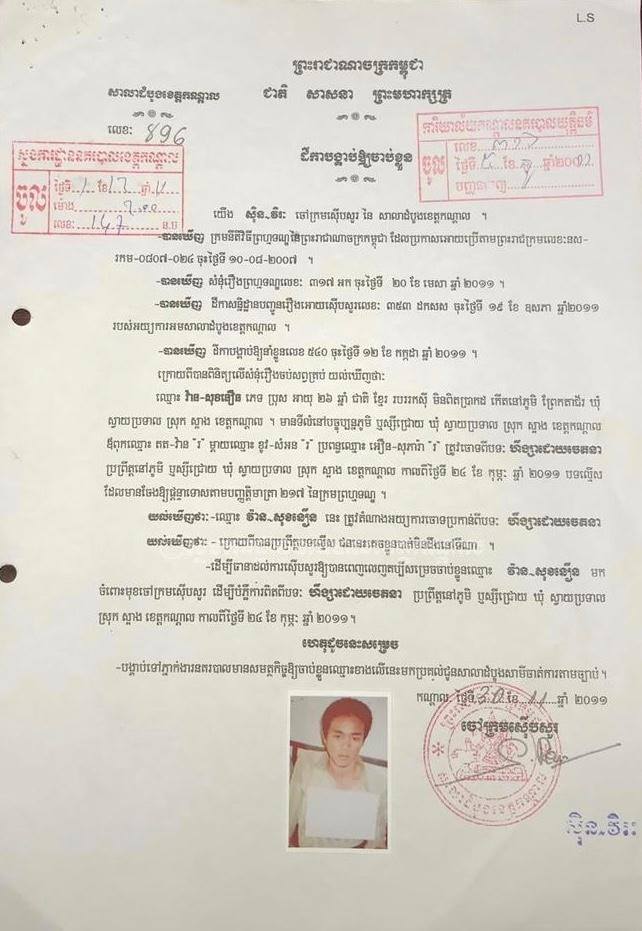 L.S
ព្រះរាជាណាចក្រកម្ពុជា
សាលាដំបូងខេត្តកណ្តាល ជាតិ សាសនា ព្រះមហាក្សត្រ
លេខ: 896
ដីកាបង្គាប់ឱ្យចាប់ខ្លួន
ស្នងការដ្ឋាននគរបាលខេត្តកណ្តាល
ចូល
ថ្ងៃទី ខែ 12 ឆ្នាំ 11
ម៉ោង
លេខ: 147 ន.ប
ការិយាល័យកណ្តាលនគរបាលយុត្តិធម៌
ចូល
លេខ
ថ្ងៃទី ខែ ឆ្នាំ២០
បញ្ជូនជា
យើង ស៊ិន-វិរៈ ចៅក្រមស៊ើបសួរ នៃ សាលាដំបូងខេត្តកណ្តាល ។
-បានឃើញ ក្រមនីតិវិធីព្រហ្មទណ្ឌនៃព្រះរាជាណាចក្រកម្ពុជា ដែលប្រកាសអោយប្រើតាមព្រះរាជក្រមលេខ:នស-
រកម-០៨០៧-០២៤ ចុះថ្ងៃទី ១០-០៨-២០០៧ ។
-បានឃើញ សំនុំរឿងព្រហ្មទណ្ឌលេខ: ៣១៧ អក ចុះថ្ងៃទី ២០ ខែ មេសា ឆ្នាំ ២០១១ ។
-បានឃើញ ដីកាសន្និដ្ឋានបញ្ជូនរឿងអោយស៊ើបសួរលេខ: ៣៥៣ ដកសស ចុះថ្ងៃទី ១៩ ខែ ឧសភា ឆ្នាំ២០១១
របស់អយ្យការអមសាលាដំបូងខេត្តកណ្តាល ។
-បានឃើញ ដីកាបង្គាប់ឱ្យនាំខ្លួនលេខ ៥៤០ ចុះថ្ងៃទី ១២ ខែ កក្កដា ឆ្នាំ ២០១១ ។
ក្រោយពីបានពិនិត្យលើសំនុំរឿងចប់សព្វគ្រប់ យល់ឃើញថា:
ឈ្មោះ វ៉ាន-សុខនឿន ភេទ ប្រុស អាយុ ២៦ ឆ្នាំ ជាតិ ខ្មែរ របររកស៊ី មិនពិតប្រាកដ កើតនៅភូមិ ព្រែកតាជ័រ ឃុំ
ស្វាយប្រទាល ស្រុក ស្អាង ខេត្តកណ្តាល ។ មានទីលំនៅបច្ចុប្បន្នភូមិ ឫស្សីជ្រោយ ឃុំ ស្វាយប្រទាល ស្រុក ស្អាង ខេត្តកណ្តាល
ឪពុកឈ្មោះ តត-វ៉ាន "រ" ម្តាយឈ្មោះ ខូវ-សំអន "រ" ប្រពន្ធឈ្មោះ អឿន-សុភារ៉ា "រ" ត្រូវចោទពីបទ: ហិង្សាដោយចេតនា
ប្រព្រឹត្តនៅភូមិ ឫស្សីជ្រោយ ឃុំ ស្វាយប្រទាល ស្រុក ស្អាង ខេត្តកណ្តាល កាលពីថ្ងៃទី ២៤ ខែ កុម្ភៈ ឆ្នាំ ២០១១ បទល្មើស
ដែលមានចែងឱ្យផ្តន្ទាទោសតាមបញ្ញត្តិមាត្រា ២១៧ នៃក្រមព្រហ្មទណ្ឌ ។
យល់ឃើញថា:-ឈ្មោះ វ៉ាន-សុខនឿន នេះ ត្រូវតំណាងអយ្យការចោទប្រកាន់ពីបទ: ហិង្សាដោយចេតនា
យល់ឃើញថា:- ក្រោយពីបានប្រព្រឹត្តបទល្មើស ជននេះគេចខ្លួនបាត់មិនដឹងនៅទីណា ។
-ដើម្បីធានាដល់ការស៊ើបសួរឱ្យបានពេញលេញគប្បីសម្រេចចាប់ខ្លួនឈ្មោះ វ៉ាន-សុខនឿន មក
ចំពោះមុខចៅក្រមស៊ើបសួរ ដើម្បីបំភ្លឺការពិតពីបទ: ហិង្សាដោយចេតនា ប្រព្រឹត្តនៅភូមិ ឫស្សីជ្រោយ ឃុំ ស្វាយប្រទាល
ស្រុក ស្អាង ខេត្តកណ្តាល កាលពីថ្ងៃទី ២៤ ខែ កុម្ភៈ ឆ្នាំ ២០១១ ។
ហេតុដូចនេះសម្រេច
-បង្គាប់ទៅភ្នាក់ងារនគរបាលមានសមត្ថកិច្ចឱ្យចាប់ខ្លួនឈ្មោះខាងលើនេះមកប្រគល់ជូនសាលាដំបូងសាមីចាត់ការតាមច្បាប់ ។
កណ្តាល ថ្ងៃទី 30 ខែ 11 ឆ្នាំ ២០១១
ចៅក្រមស៊ើបសួរ
ស៊ិន-វិរៈ